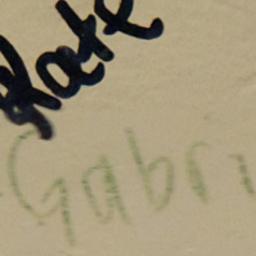 Kate
Gabri